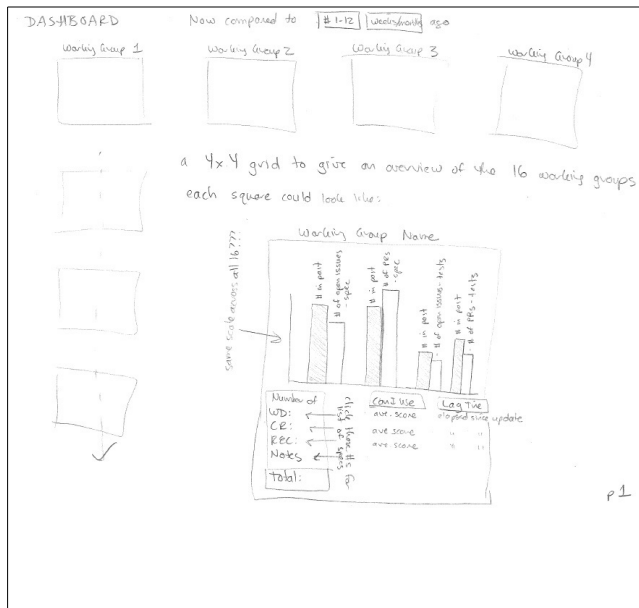 DASHBOARD
Now compared to # 1-12 weeks/months ago
Working Group 1
Working Group 2
Working Group 3
Working Group 4
a 4x4 grid to give an overview of the 16 working groups
each square could look like:
Working Group Name
same scale across all 16???
# in past
# of open issues
- spec
# in past
# of PRs
- spec
# in past
# of open issues - tests
# in past
# of PRs - tests
Number of
WD:
CR:
REC:
Notes
Total:
click these #s for
list of specs
CanIUse
ave. score
ave score
ave score
Lag Time
elapsed since update
" "
" "
p1